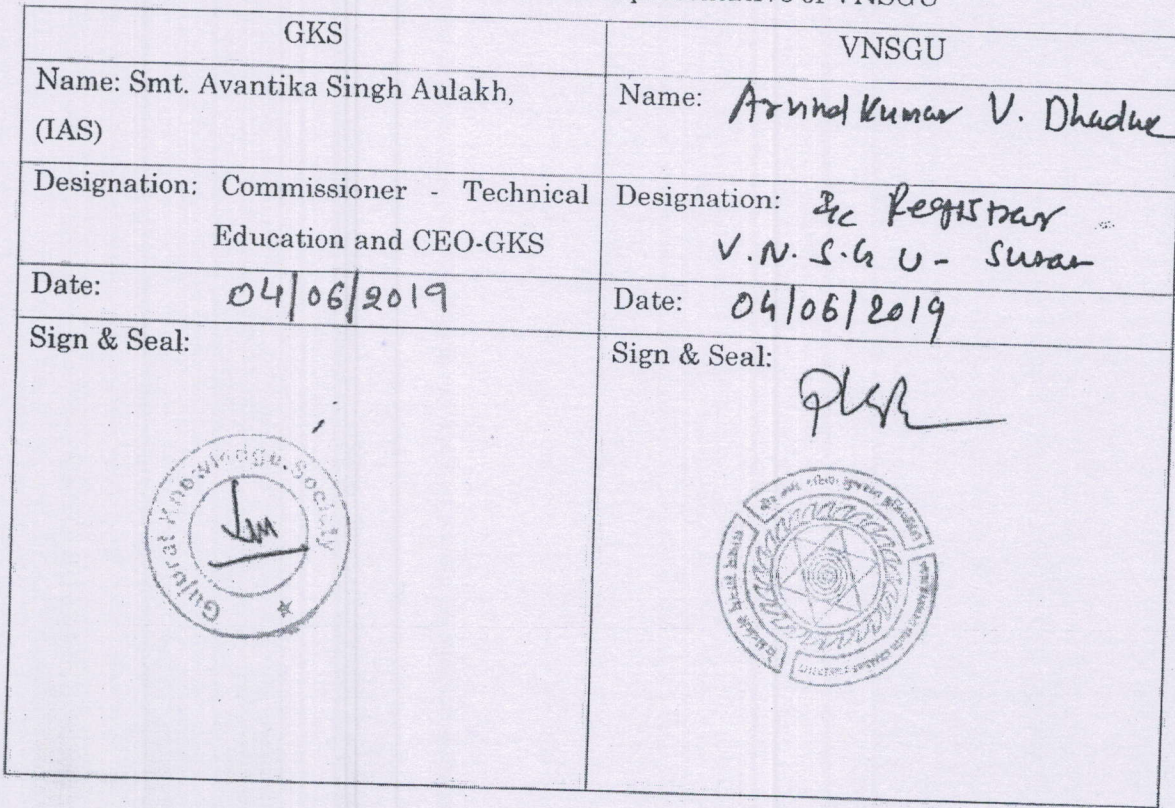 of VNSGU
GKS
VNSGU
Name: Smt. Avantika Singh Aulakh,
(IAS)
Name: Arvind Kumar V. Dhaduk
Designation: Commissioner - Technical
Education and CEO-GKS
Designation: I/c Registrar
V.N.S.G U - Surat
Date: 04/06/2019
Date: 04/06/2019
Sign & Seal:
Sign & Seal:
Gujarat Knowledge Society